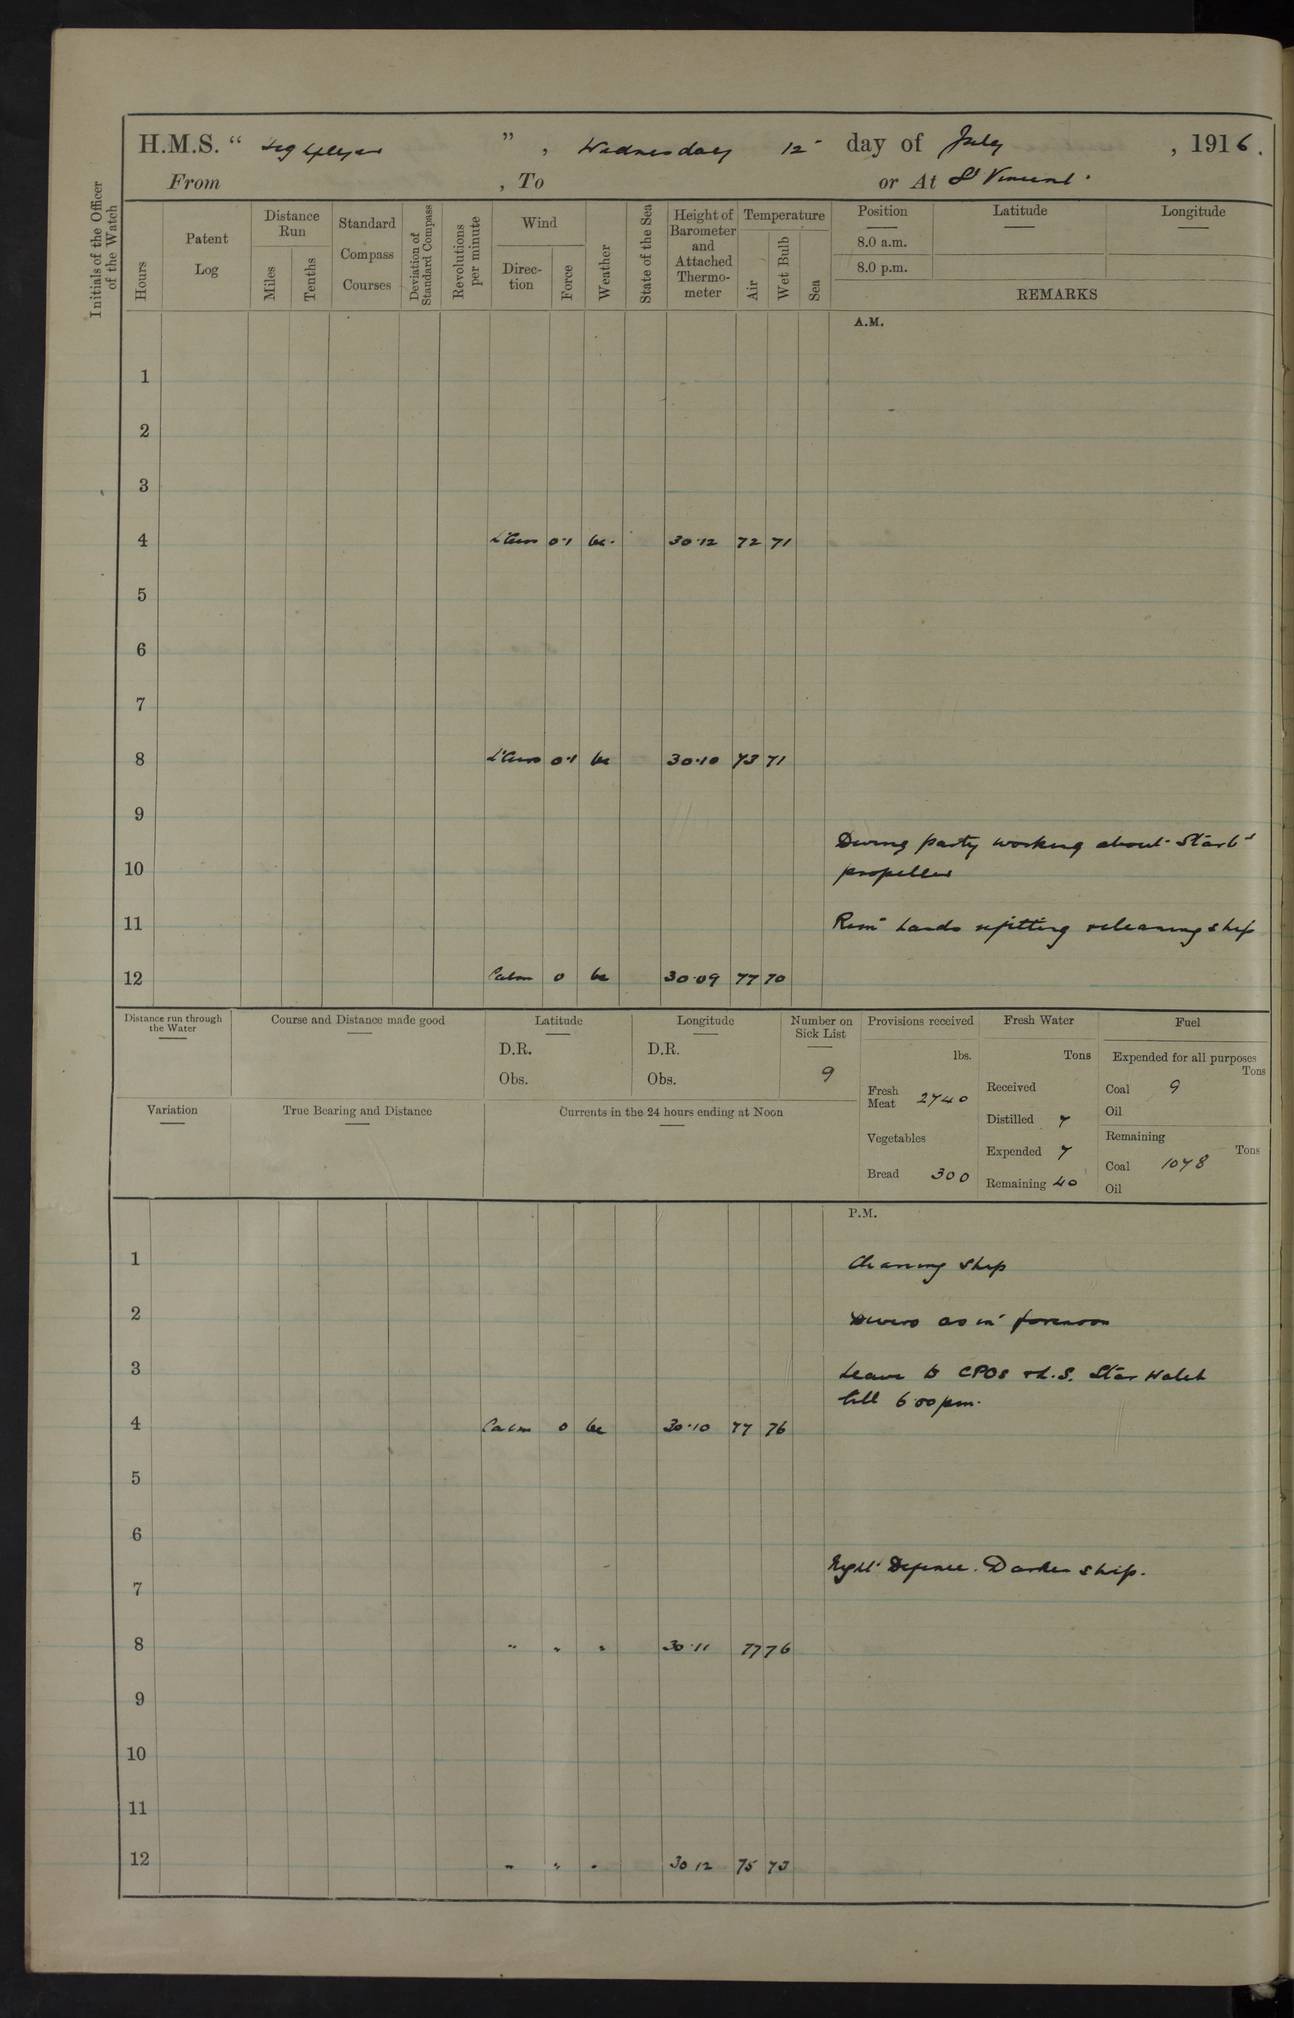 H.M.S. “ Highflyer ”, Wednesday 12 day of July, 1916.
From , To or At St Vincent.
Initials of the Officer of the Watch
Hours
Patent Log
Distance Run
Miles
Tenths
Standard Compass Courses
Deviation of Standard Compass
Revolutions per minute
Wind
Direction
Force
Weather
State of the Sea
Height of Barometer and Attached Thermometer
Temperature
Air
Wet Bulb
Sea
Position
Latitude
Longitude
8.0 a.m.
8.0 p.m.
REMARKS
A.M.
1
2
3
4 L'Airs 0·1 bc. 30·12 72 71
5
6
7
8 L'Airs 0·1 bc 30·10 73 71
9
Diving party working about Starbd
10 propeller
11 Remg hands refitting & cleaning ship
12 Calm 0 bc 30·09 77 70
Distance run through the Water
Course and Distance made good
Latitude
D.R.
Obs.
Longitude
D.R.
Obs.
Number on Sick List
9
Provisions received
lbs.
Fresh Meat 2740
Vegetables
Bread 300
Fresh Water
Tons
Received
Distilled 7
Expended 7
Remaining 40
Fuel
Expended for all purposes
Tons
Coal 9
Oil
Remaining
Tons
Coal 1078
Oil
Variation
True Bearing and Distance
Currents in the 24 hours ending at Noon
P.M.
1 Cleaning ship
2 Divers as in forenoon
3 Leave to CPOs & L.S. Star Watch
till 6·00 pm.
4 Calm 0 bc 30·10 77 76
5
6
Night Defence. Darken ship.
7
8 " " " 30·11 77 76
9
10
11
12 " " " 30 12 75 73